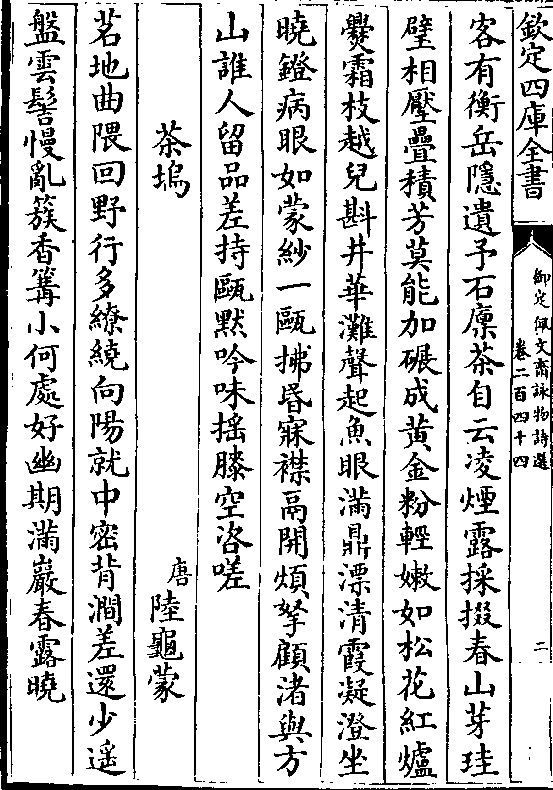 欽定四庫全書
御定佩文齋詠物詩選
卷二百四十四
二
客有衡岳隱遺予石廩茶自云凌煙露採掇春山芽珪
璧相壓疊積芳莫能加碾成黃金粉輕嫩如松花紅爐
爨霜枝越兒斟井華灘聲起魚眼滿鼎漂清霞凝澄坐
曉鐙病眼如蒙紗一甌拂昏寐襟鬲開煩拏顧渚與方
山誰人留品差持甌默吟味揺膝空咨嗟
茶塢
唐陸龜蒙
茗地曲隈回野行多繚繞向陽就中密背澗差還少遥
盤雲髻慢亂簇香篝小何處好幽期滿巖春露曉